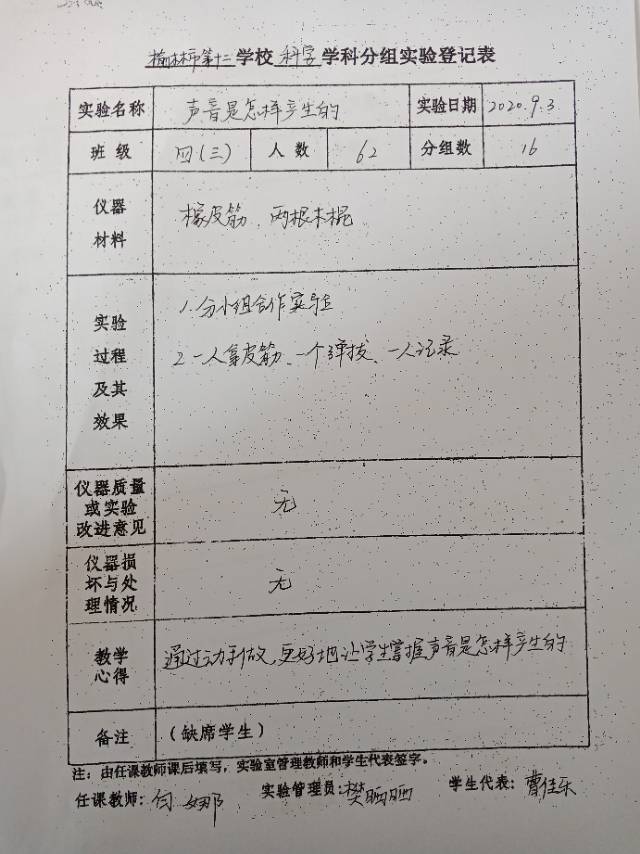 榆林市第十二学校科学学科分组实验登记表
实验名称 声音是怎样产生的 实验日期 2020.9.3
班级 四(三) 人数 62 分组数 16
仪器材料 橡皮筋、两根木棍
实验过程及其效果 1.分小组合作实验
2.一人拿皮筋、一个弹拨、一人记录
仪器质量或实验改进意见 无
仪器损坏与处理情况 无
教学心得 通过动手做,更好地让学生掌握声音是怎样产生的
备注 (缺席学生)
注:由任课教师课后填写,实验室管理教师和学生代表签字。
任课教师: 娜 实验管理员:樊晒晒 学生代表:曹佳乐